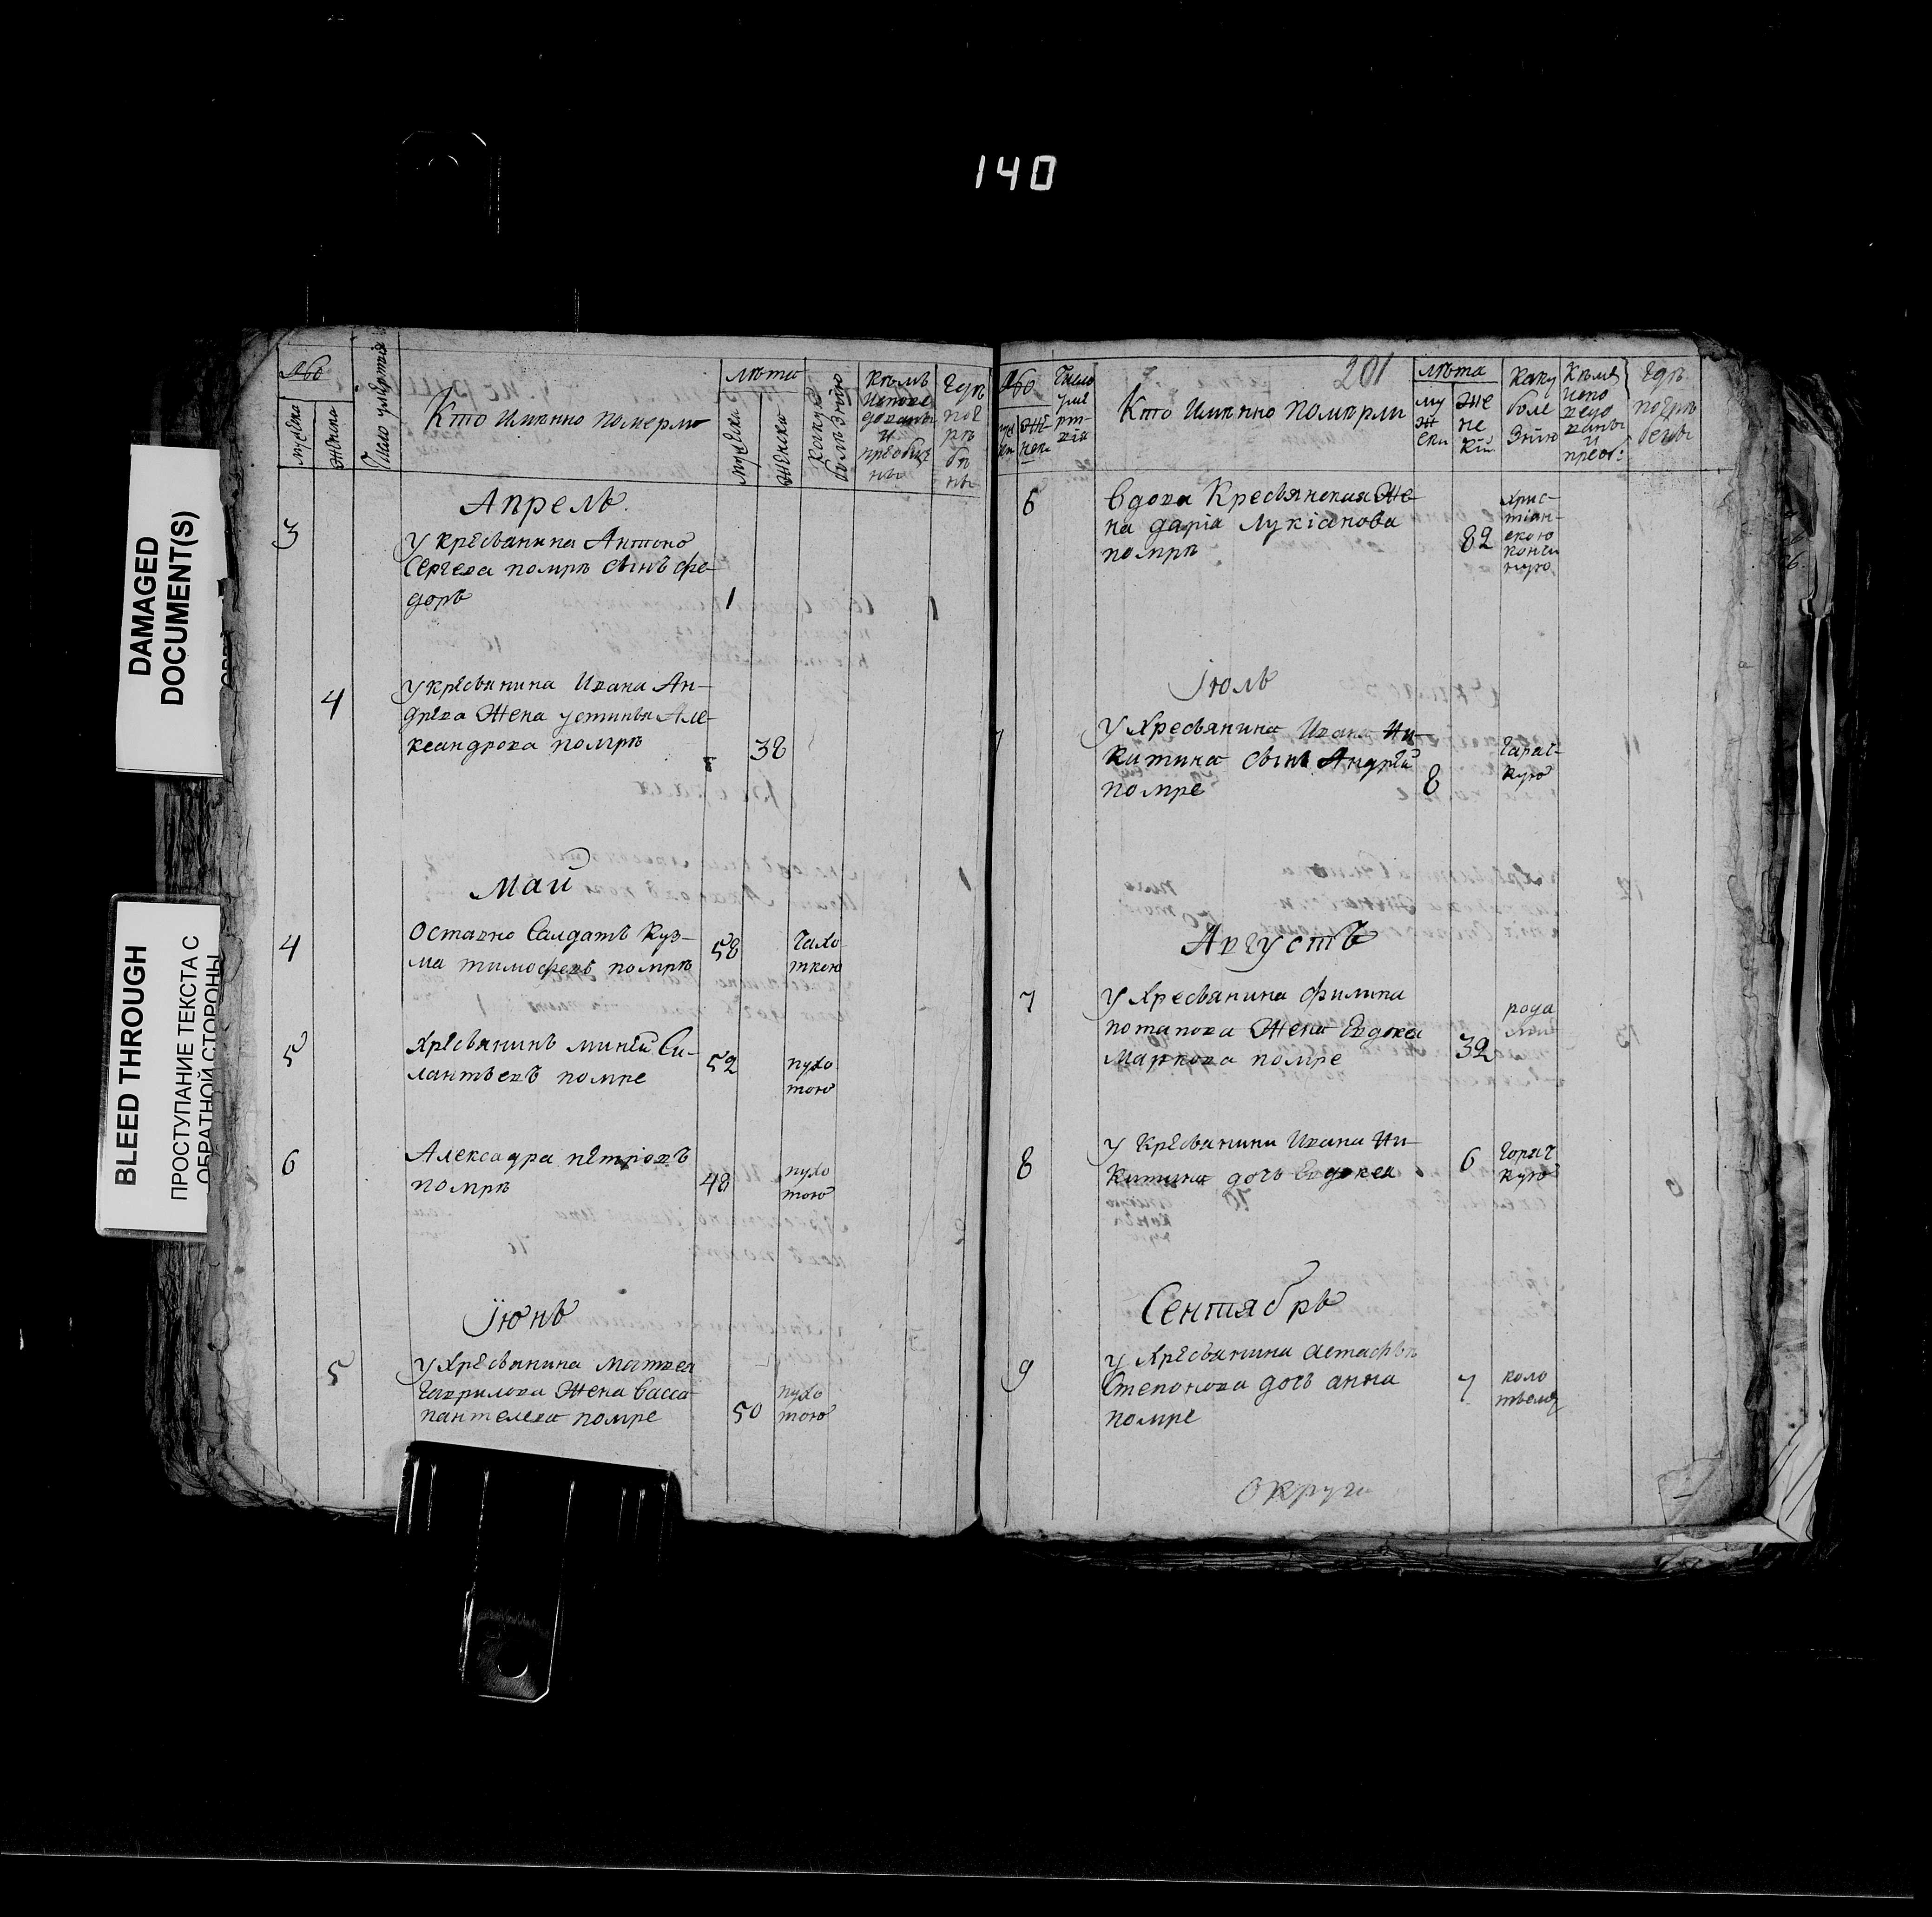 140
DAMAGED
DOCUMENT(S)
BLEED THROUGH
ПРОСТУПАНИЕ ТЕКСТА С
ОБРАТНОЙ СТОРОНЫ
мужска
женска
Число умертвія
Кто имянно померли
лѣта
мужска
женска
кѣмъ
испове
дованы
и
преобще
ны
Гдѣ
пог
рѣ
бѣ
ны
Апрель
3
у кресьянина Антона
Сергева помрѣ сынъ фе-
доръ
1
4
у кресьянина Ивана Ан-
древа жена устинья Але-
ксандрова помрѣ
38
Май
4
Оставно Салдатъ Куз-
ма тимофевъ помрѣ
58
Чахо
ткою
5
Хресьянинъ миней Си-
лантьевъ помре
52
пухо
тою
6
Александра петровъ
помрѣ
48
пухо
тою
Іюнь
5
у Хресьянина матвея
Гаврилова жена васса
пантелева помре
50
пухо
тою
201
Число
уме
рт-
вія
Кто имянно помѣрли
лѣта
му
ж
ски
же
не
кій
каку
боле
зню
Кѣмъ
испо
ведо
ваны
и
преоб:
Гдѣ
погрѣ
бены
6
вдова Кресьянская же-
на даріа Лукіанова
помрѣ
82
хрис-
тіан-
скою
кончи
ною
Іюль
7
у Хресьянина Ивана Ни-
китина сынъ Андрей
помре
8
Гарач-
кую
Августъ
7
у Хресьянина филипа
потапова жена Евдокея
Маркова помре
32
рода
ми
8
у Кресьянина Ивана Ни-
китина дочь Евдокея
6
Горяч
кую
Сентябрь
9
у Хресьянина астафья
Степонова дочь анна
помре
7
коло
тьемъ
Округи